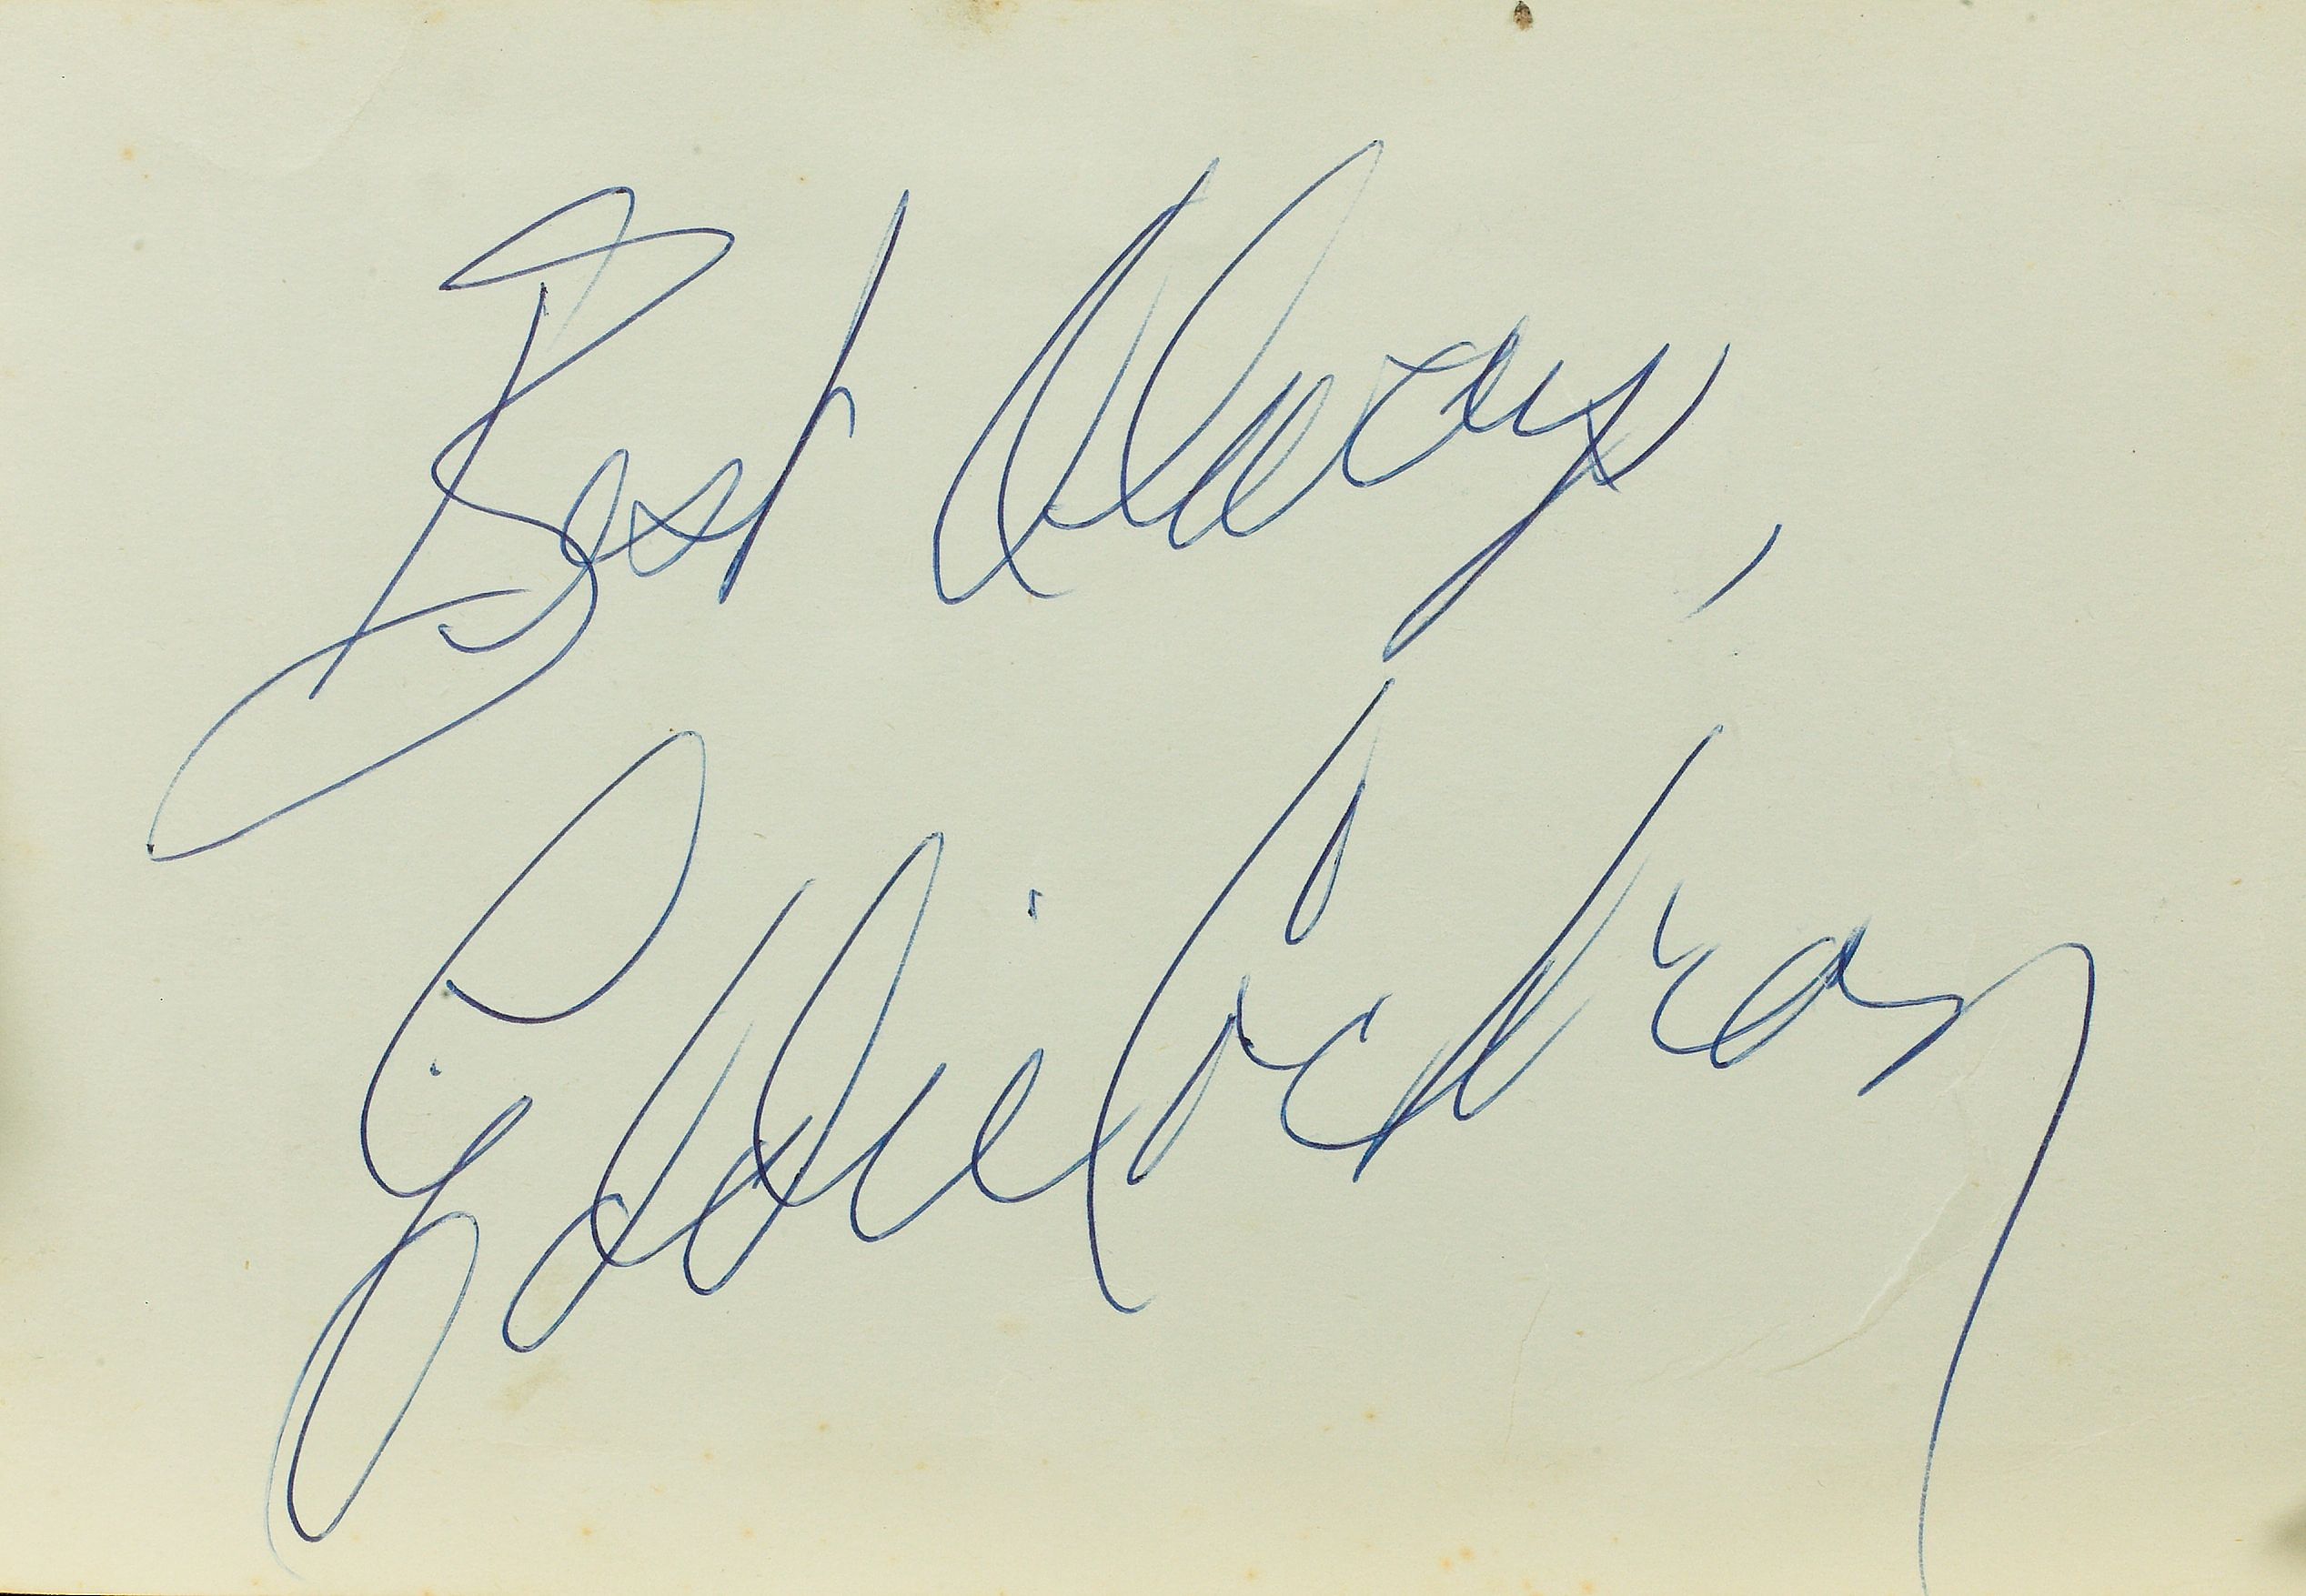 Best Always,
Eddie Cochran